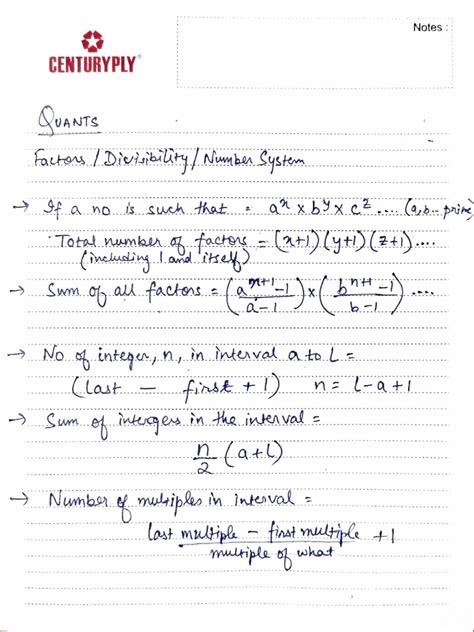 Notes :
CENTURYPLY®
QUANTS
Factors / Divisibility / Number System
→ If a no is such that = aˣ × bʸ × cᶻ .... (a,b.. prime)
Total number of factors = (x+1)(y+1)(z+1)....
(including 1 and itself)
→ Sum of all factors = (aᵐ⁺¹-1 / a-1) × (bⁿ⁺¹-1 / b-1) ....
→ No of integer, n, in interval a to L =
(last - first + 1) n = L-a+1
→ Sum of intergers in the interval =
n/2 (a+L)
→ Number of multiples in interval =
last multiple - first multiple + 1
multiple of what